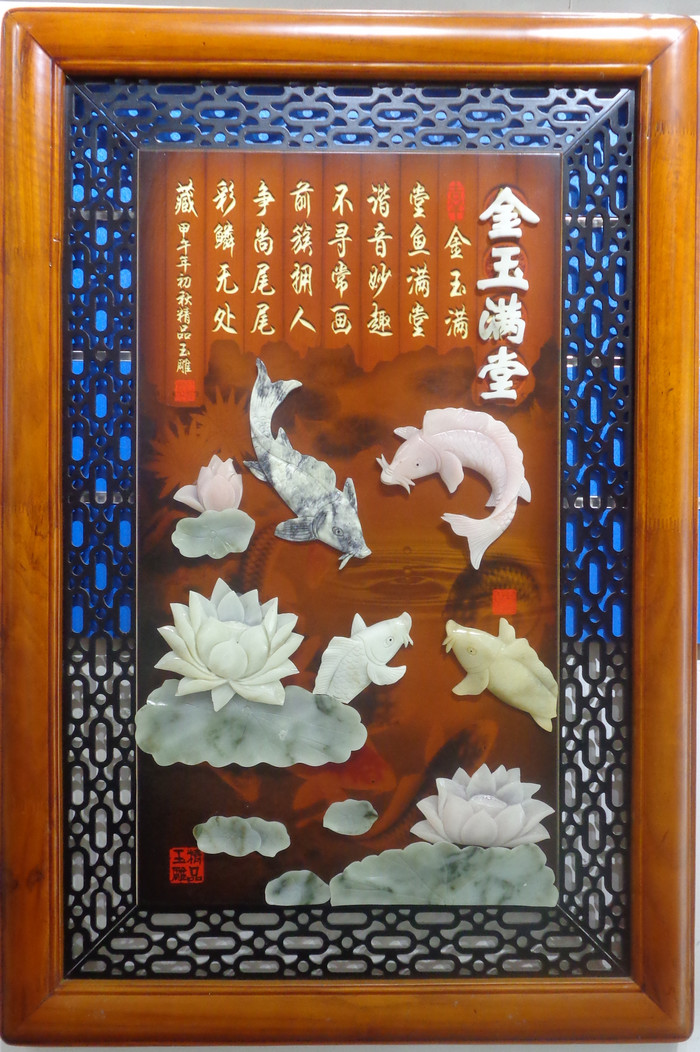 金玉满堂
金玉满
堂鱼满堂
谐音妙趣
不寻常画
前簇拥人
争尚尾尾
彩鳞无处
藏
甲午年初秋精品玉雕
精品
玉雕